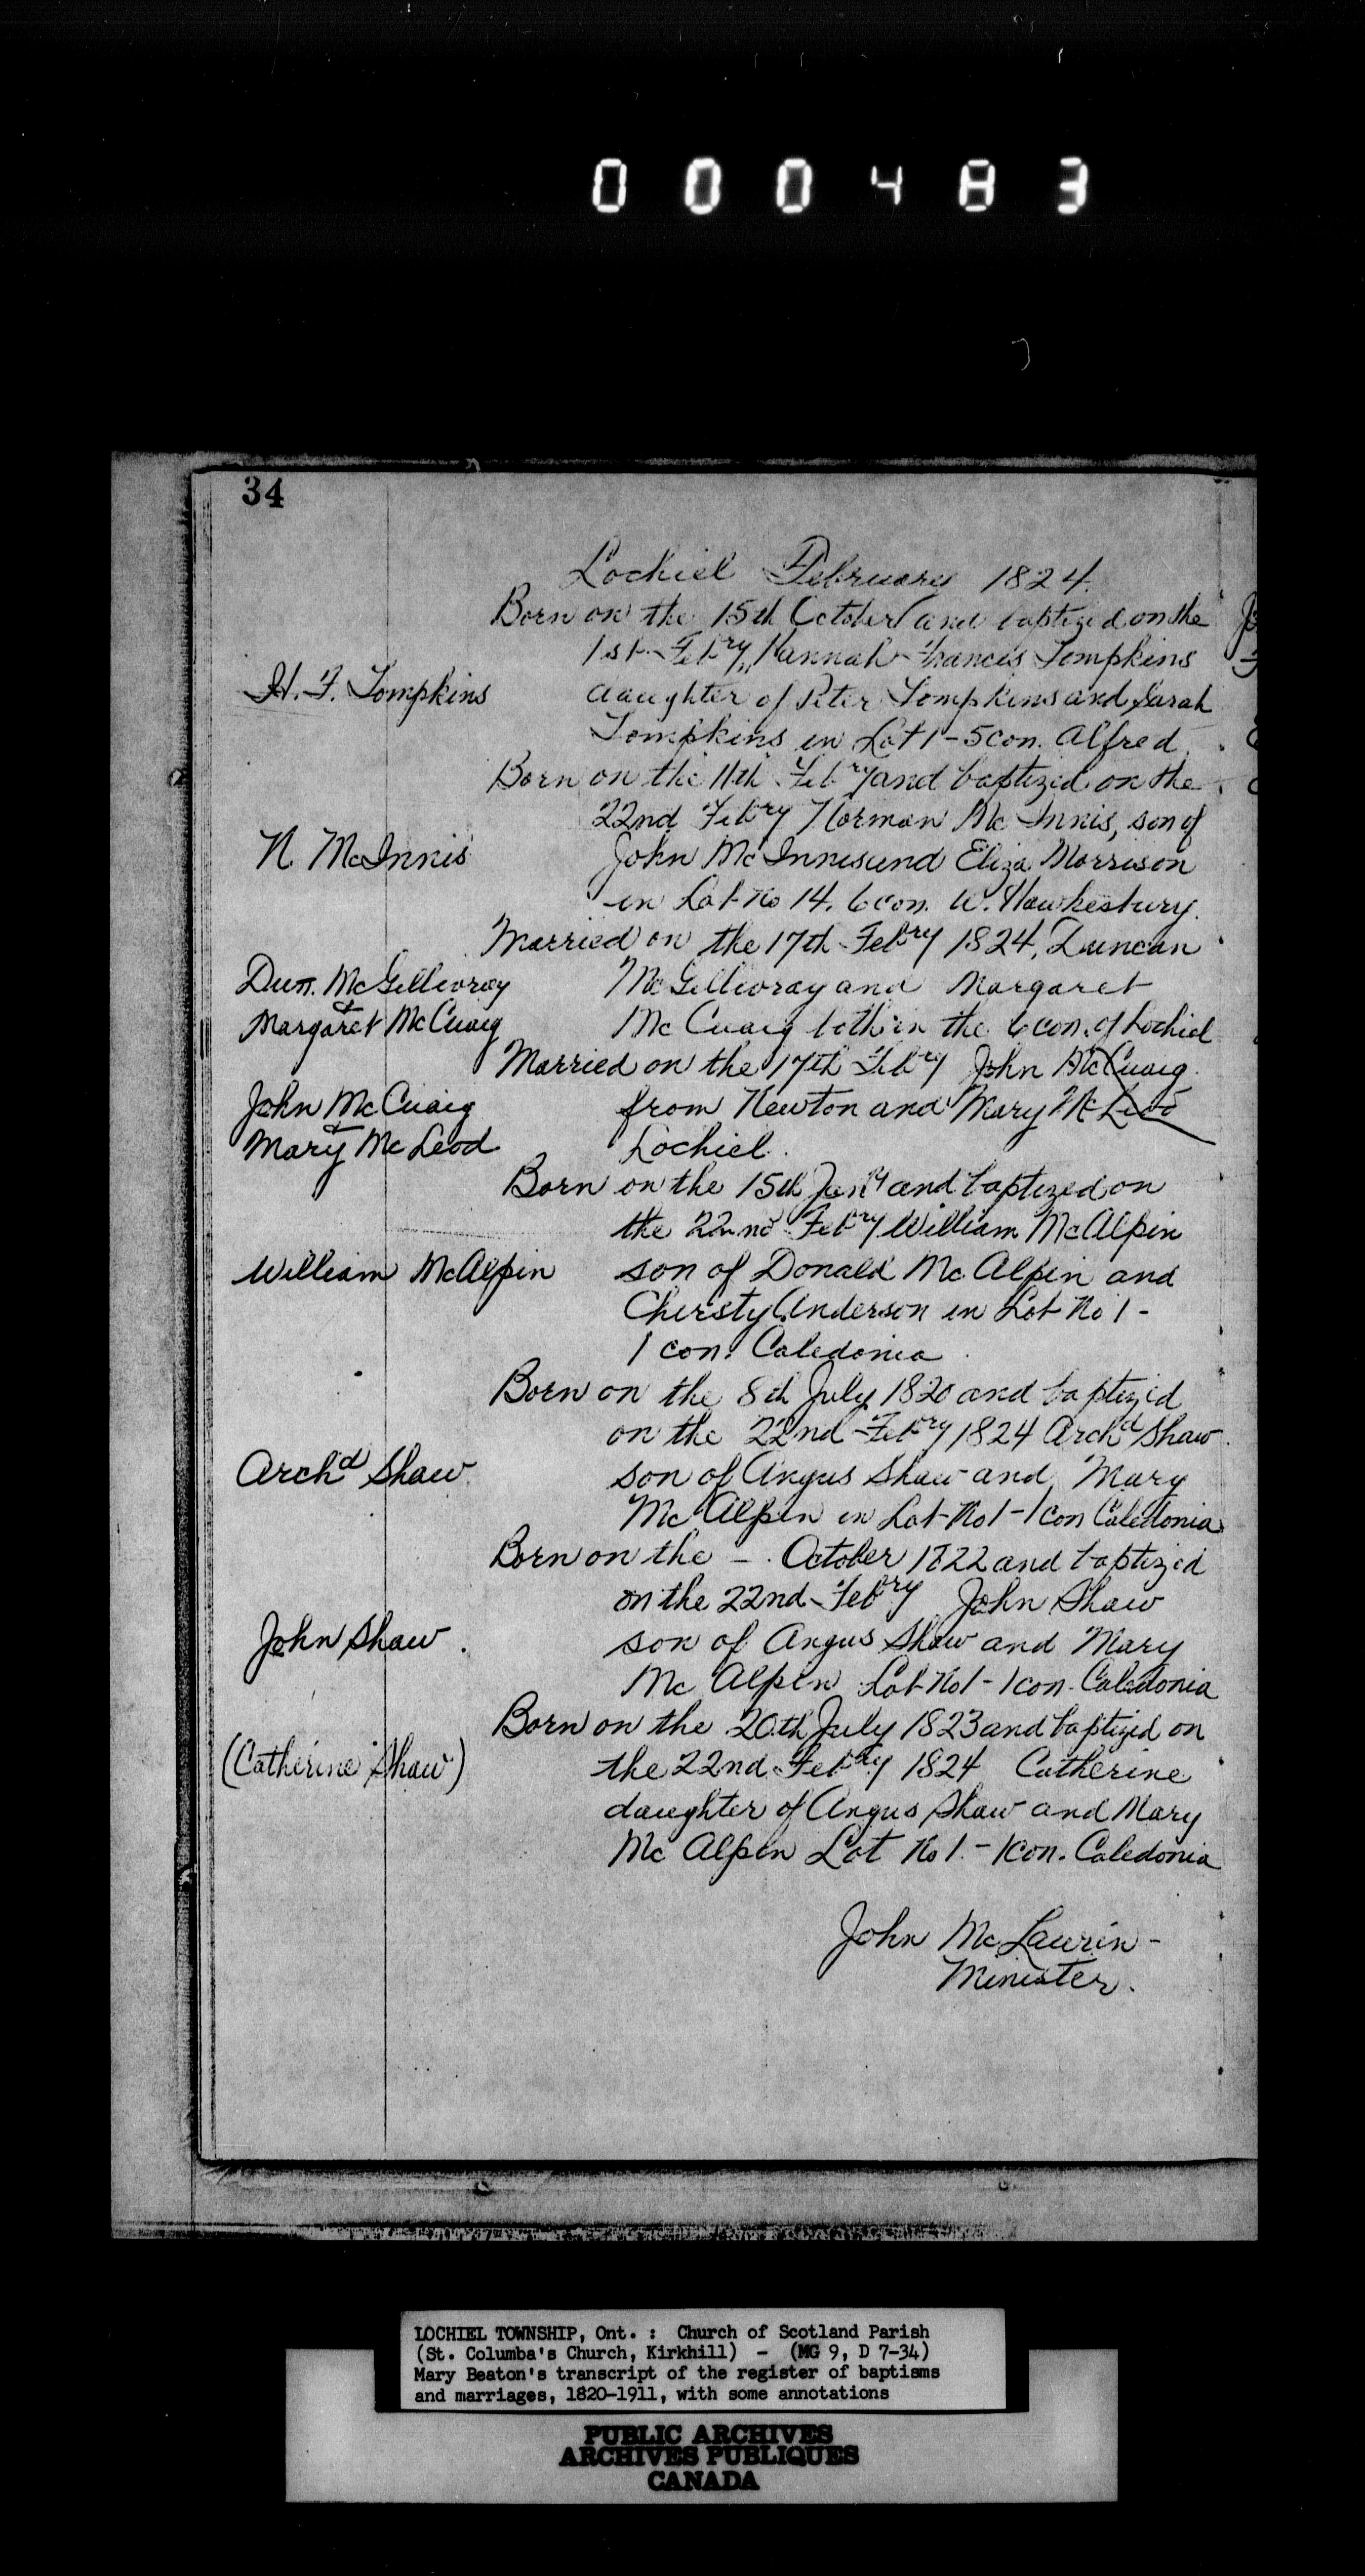 000483
34
Lochiel February 1824.
Born on the 15th October and baptized on the
1st Febry, Hannah Francis Tompkins
H. F. Tompkins
daughter of Peter Tompkins and Sarah
Tompkins in Lot 1 - 5 con. Alfred.
Born on the 11th Febry and baptized on the
22nd Febry Norman Mc Innis, son of
N. McInnis
John McInnis and Eliza Morrison
in Lot No 14. 6 con. W. Hawkesbury.
Married on the 17th Febry 1824, Duncan
Dun. McGillivray
McGillivray and Margaret
&
Margaret McCuaig
McCuaig both in the 6 con. of Lochiel
Married on the 17th Febry John McCuaig
John McCuaig
from Newton and Mary McLeod
&
Mary McLeod
Lochiel.
Born on the 15th Jany and baptized on
the 22nd Febry William McAlpin
William McAlpin
son of Donald McAlpin and
Chirsty Anderson in Lot No 1 -
1 con. Caledonia
Born on the 8th July 1820 and baptized
on the 22nd Febry 1824 Archd Shaw
Archd Shaw.
son of Angus Shaw and Mary
McAlpin in Lot No 1 - 1 con Caledonia
Born on the - . October 1822 and baptized
on the 22nd Febry John Shaw
John Shaw.
son of Angus Shaw and Mary
Mc Alpin Lot No 1 - 1 con. Caledonia
Born on the 20th July 1823 and baptized on
(Catherine Shaw)
the 22nd Febry 1824 Catherine
daughter of Angus Shaw and Mary
Mc Alpin Lot No 1. - 1 con. Caledonia
John McLaurin -
Minister.
LOCHIEL TOWNSHIP, Ont. : Church of Scotland Parish
(St. Columba's Church, Kirkhill) - (MG 9, D 7-34)
Mary Beaton's transcript of the register of baptisms
and marriages, 1820-1911, with some annotations
PUBLIC ARCHIVES
ARCHIVES PUBLIQUES
CANADA